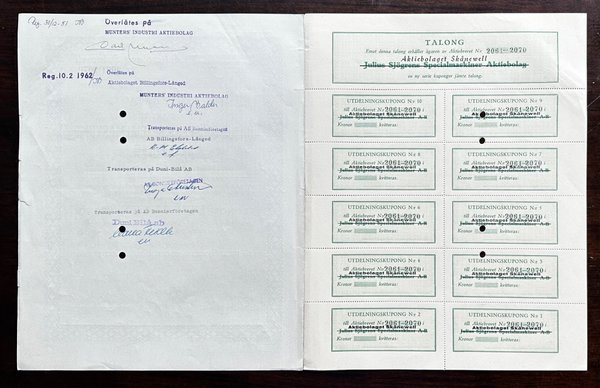 Reg. 31/12-51
Överlåtes på
MUNTERS' INDUSTRI AKTIEBOLAG
Reg. 10.2 1962
Överlåtes på
Aktiebolaget Billingsfors-Långed
MUNTERS' INDUSTRI AKTIEBOLAG
Transporteras på AB Bonnierföretagen
AB Billingsfors-Långed
Transporteras på Duni-Bilå AB
AB BONNIERFÖRETAGEN
Transporteras på AB Bonnierföretagen
Duni Bilå AB
TALONG
Emot denna talong erhåller ägaren av Aktiebrevet Nr 2061-2070
Aktiebolaget Skånewell
Julius Sjögrens Specialmaskiner Aktiebolag
en ny serie kuponger jämte talong.
UTDELNINGSKUPONG Nr 10
till Aktiebrevet Nr 2061-2070 i
Aktiebolaget Skånewell
Julius Sjögrens Specialmaskiner A-B
Kronor kvitteras:
UTDELNINGSKUPONG Nr 9
till Aktiebrevet Nr 2061-2070 i
Aktiebolaget Skånewell
Julius Sjögrens Specialmaskiner A-B
Kronor kvitteras:
UTDELNINGSKUPONG Nr 8
till Aktiebrevet Nr 2061-2070 i
Aktiebolaget Skånewell
Julius Sjögrens Specialmaskiner A-B
Kronor kvitteras:
UTDELNINGSKUPONG Nr 7
till Aktiebrevet Nr 2061-2070 i
Aktiebolaget Skånewell
Julius Sjögrens Specialmaskiner A-B
Kronor kvitteras:
UTDELNINGSKUPONG Nr 6
till Aktiebrevet Nr 2061-2070 i
Aktiebolaget Skånewell
Julius Sjögrens Specialmaskiner A-B
Kronor kvitteras:
UTDELNINGSKUPONG Nr 5
till Aktiebrevet Nr 2061-2070 i
Aktiebolaget Skånewell
Julius Sjögrens Specialmaskiner A-B
Kronor kvitteras:
UTDELNINGSKUPONG Nr 4
till Aktiebrevet Nr 2061-2070 i
Aktiebolaget Skånewell
Julius Sjögrens Specialmaskiner A-B
Kronor kvitteras:
UTDELNINGSKUPONG Nr 3
till Aktiebrevet Nr 2061-2070 i
Aktiebolaget Skånewell
Julius Sjögrens Specialmaskiner A-B
Kronor kvitteras:
UTDELNINGSKUPONG Nr 2
till Aktiebrevet Nr 2061-2070 i
Aktiebolaget Skånewell
Julius Sjögrens Specialmaskiner A-B
Kronor kvitteras:
UTDELNINGSKUPONG Nr 1
till Aktiebrevet Nr 2061-2070 i
Aktiebolaget Skånewell
Julius Sjögrens Specialmaskiner A-B
Kronor kvitteras: